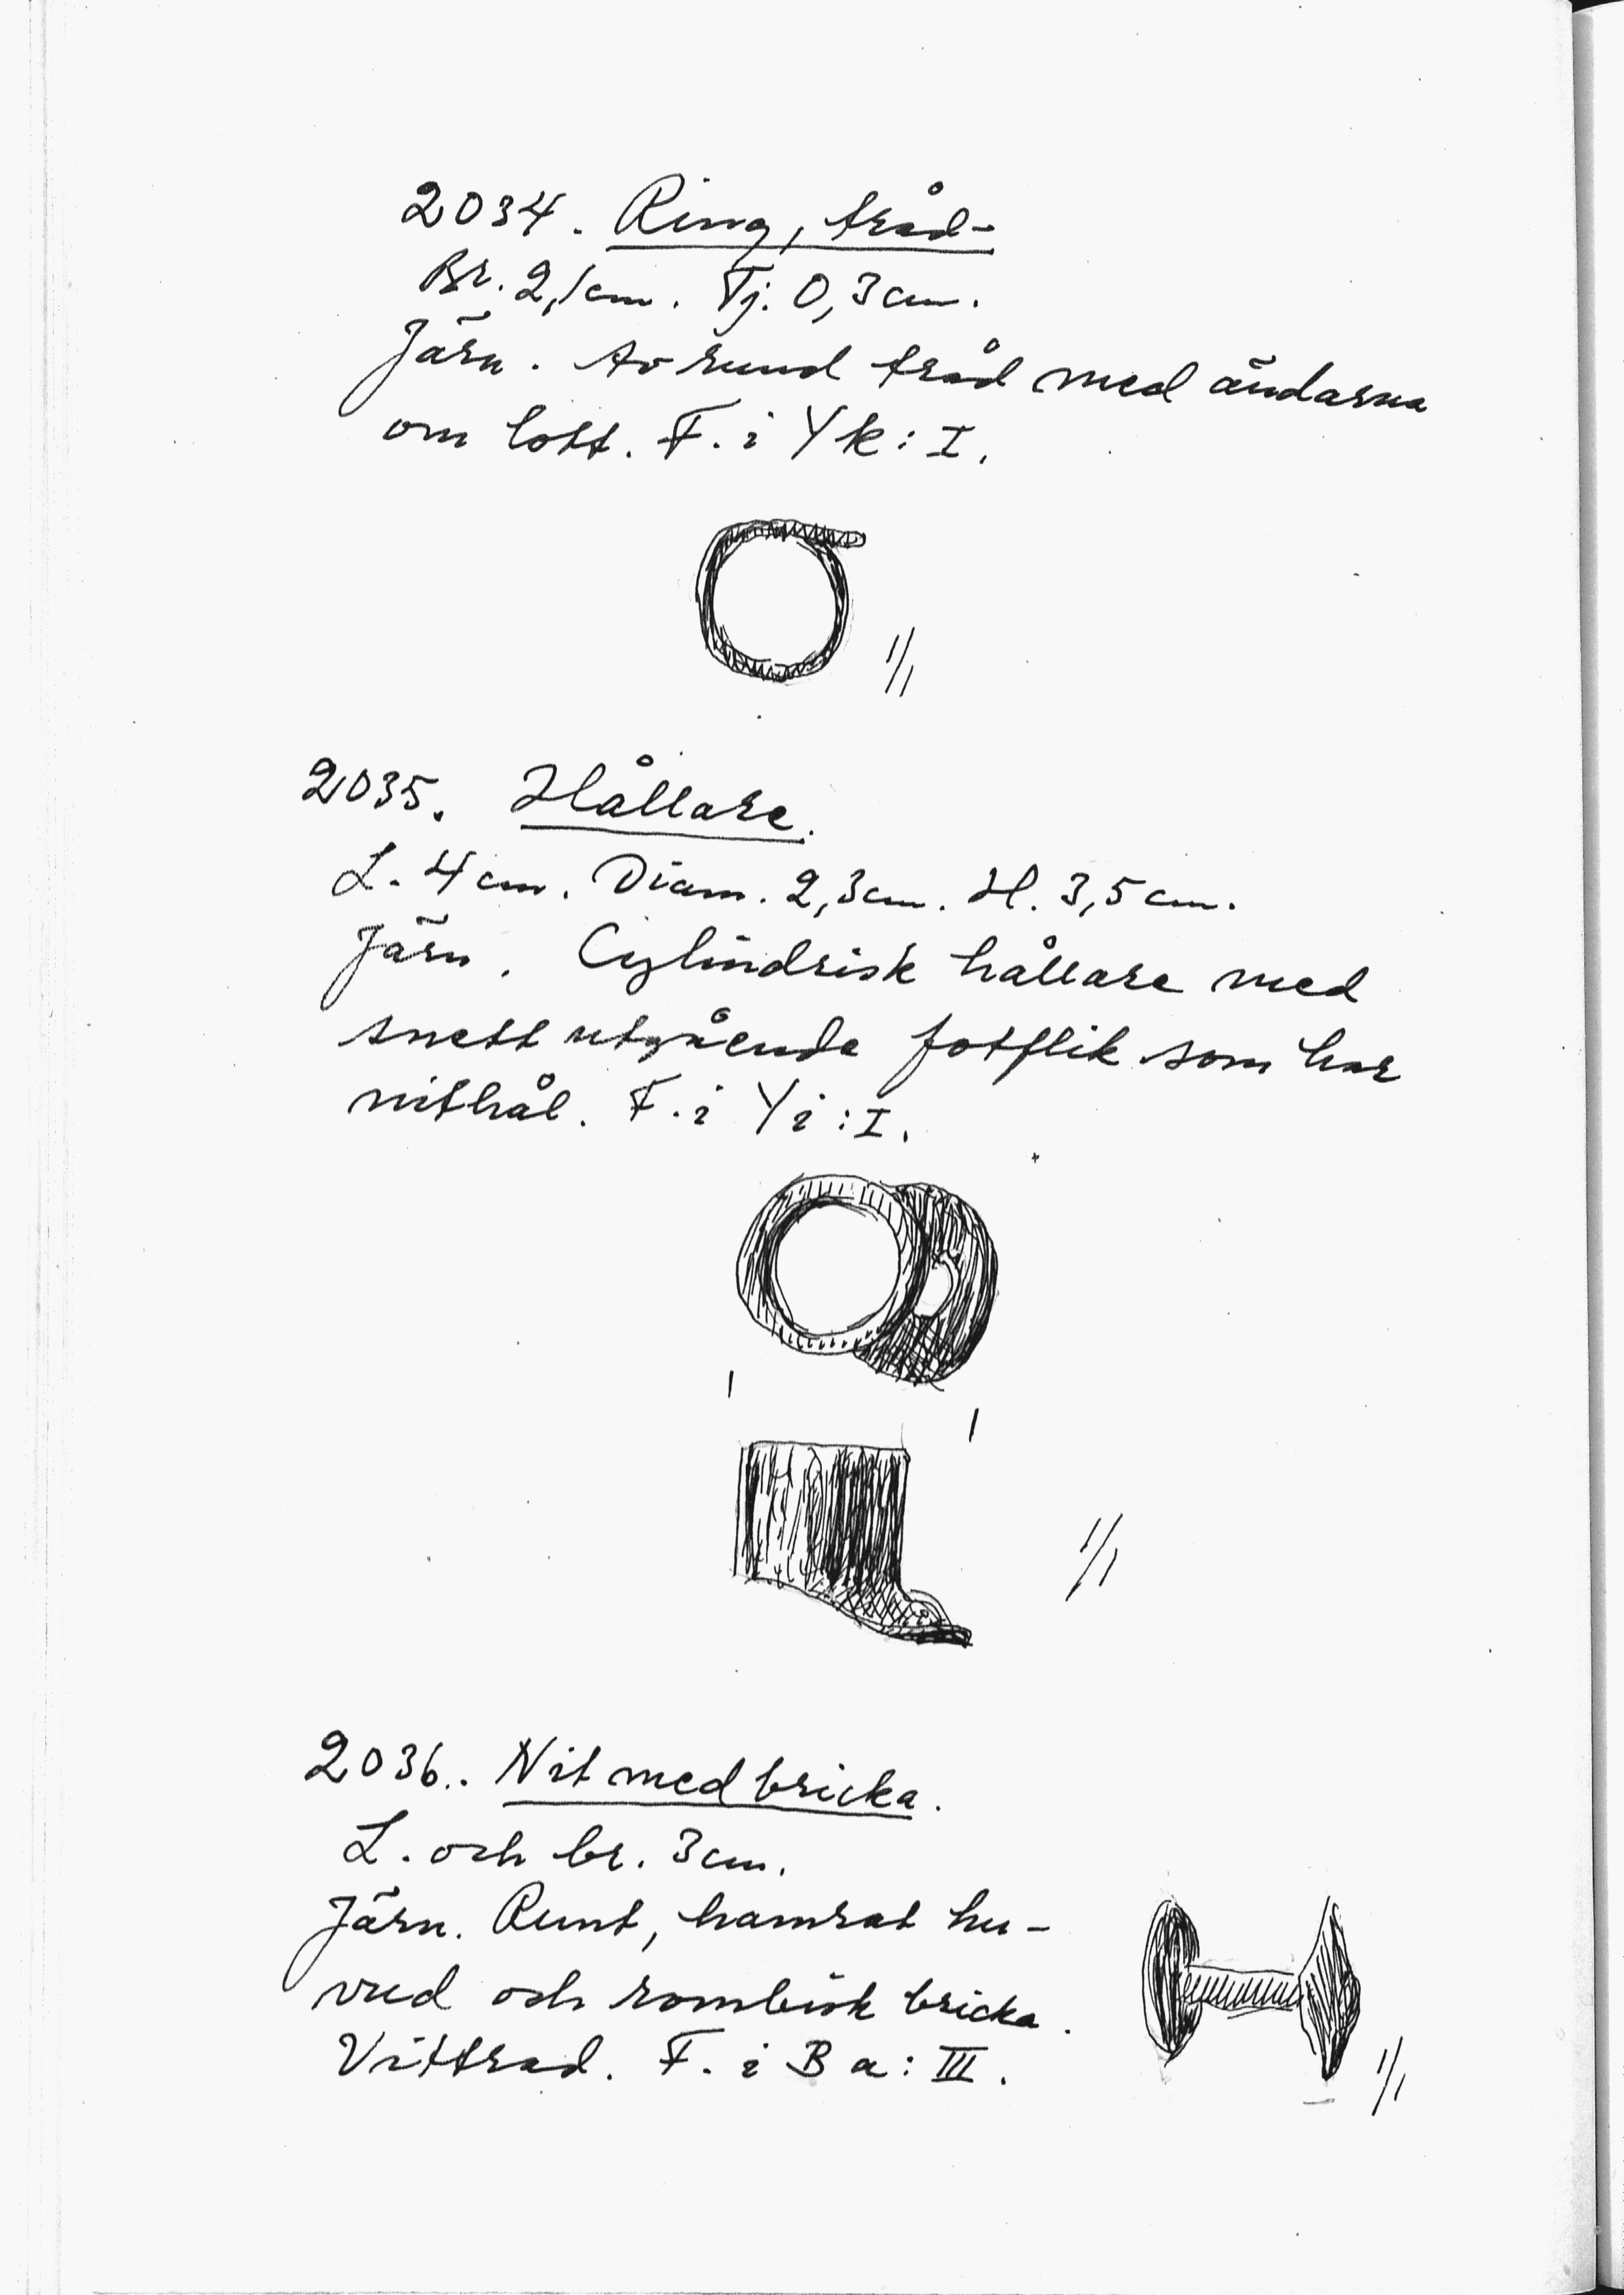 2034. Ring, tråd-
Br. 2,1 cm. Tj. 0,3 cm.
Järn. Av rund tråd med ändarna
om lott. F. i Yk: I.
1/1
2035. Hållare.
L. 4 cm. Diam. 2,3 cm. H. 3,5 cm.
Järn. Cylindrisk hållare med
snett utgående fotflik som har
nithål. F. i Yi: I.
1/1
2036. Nit med bricka.
L. och br. 3 cm.
Järn. Runt, hamrat hu-
vud och rombisk bricka.
Vittrad. F. i Ba: III.
1/1